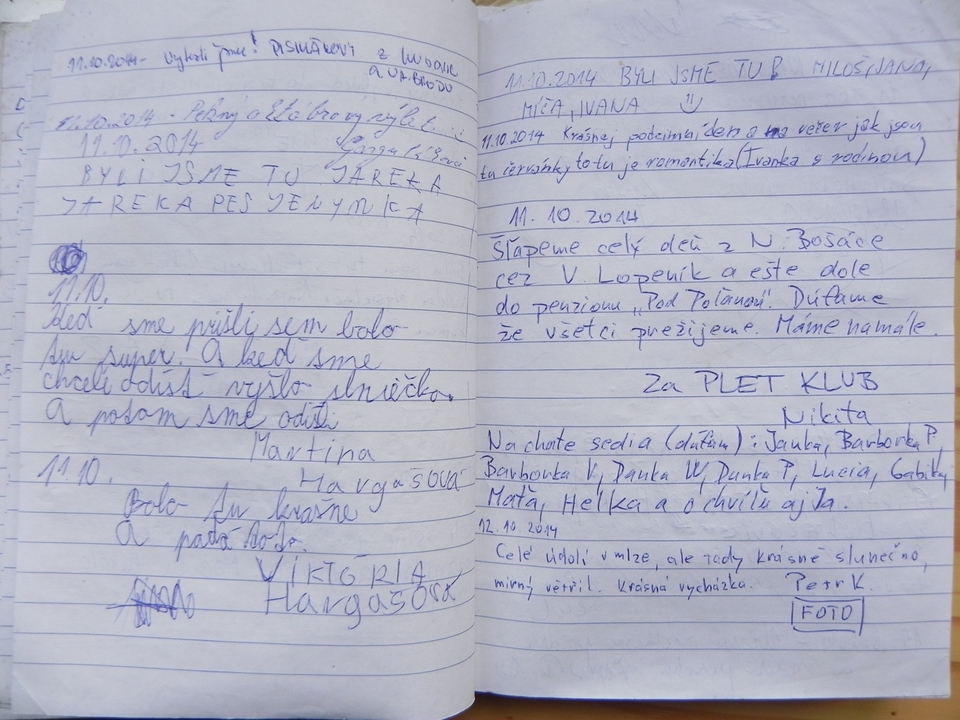 11.10.2014 - vylezli jsme! PISMÁKOVI z
a UH. BRODU
11.10.2014 - Pekný a štábrový výlet...
11.10.2014
BYLI JSME TU JAREKA
JAREKA PES JENYNIKA
11.10.
Keď sme prišli sem bolo
tu super. A keď sme
chceli odísť vyšlo slniečko.
A potom sme odišli
Martina
Hargašová
11.10.
Bolo tu krásne
A padá
VIKTÓRIA
Hargašová
11.10.2014 BYLI JSME TU B MILOŠ, JANA,
MÍŤA, IVANA
11.10.2014 Krásnej podzimní den a na večer jak jsou
tu červánky to tu je romantika (Ivanka s rodinou)
11. 10. 2014
Šľapeme celý deň z N. Bošáce
cez V. Lopeník a ešte dole
do penzionu „Pod Poľanou". Dúfame
že všetci prežijeme. Máme namále.
Za PLET KLUB
Nikita
Na chate sedia (dúfam): Janka, Barborka P,
Barborka K, Danka W, Danka P, Lucia, Gabika,
Maťa, Helka a o chvíľu aj Ja.
12.10.2014
Celé údolí v mlze, ale tady krásně slunečno,
mírný větřil. Krásná vycházka. Petr K.
FOTO